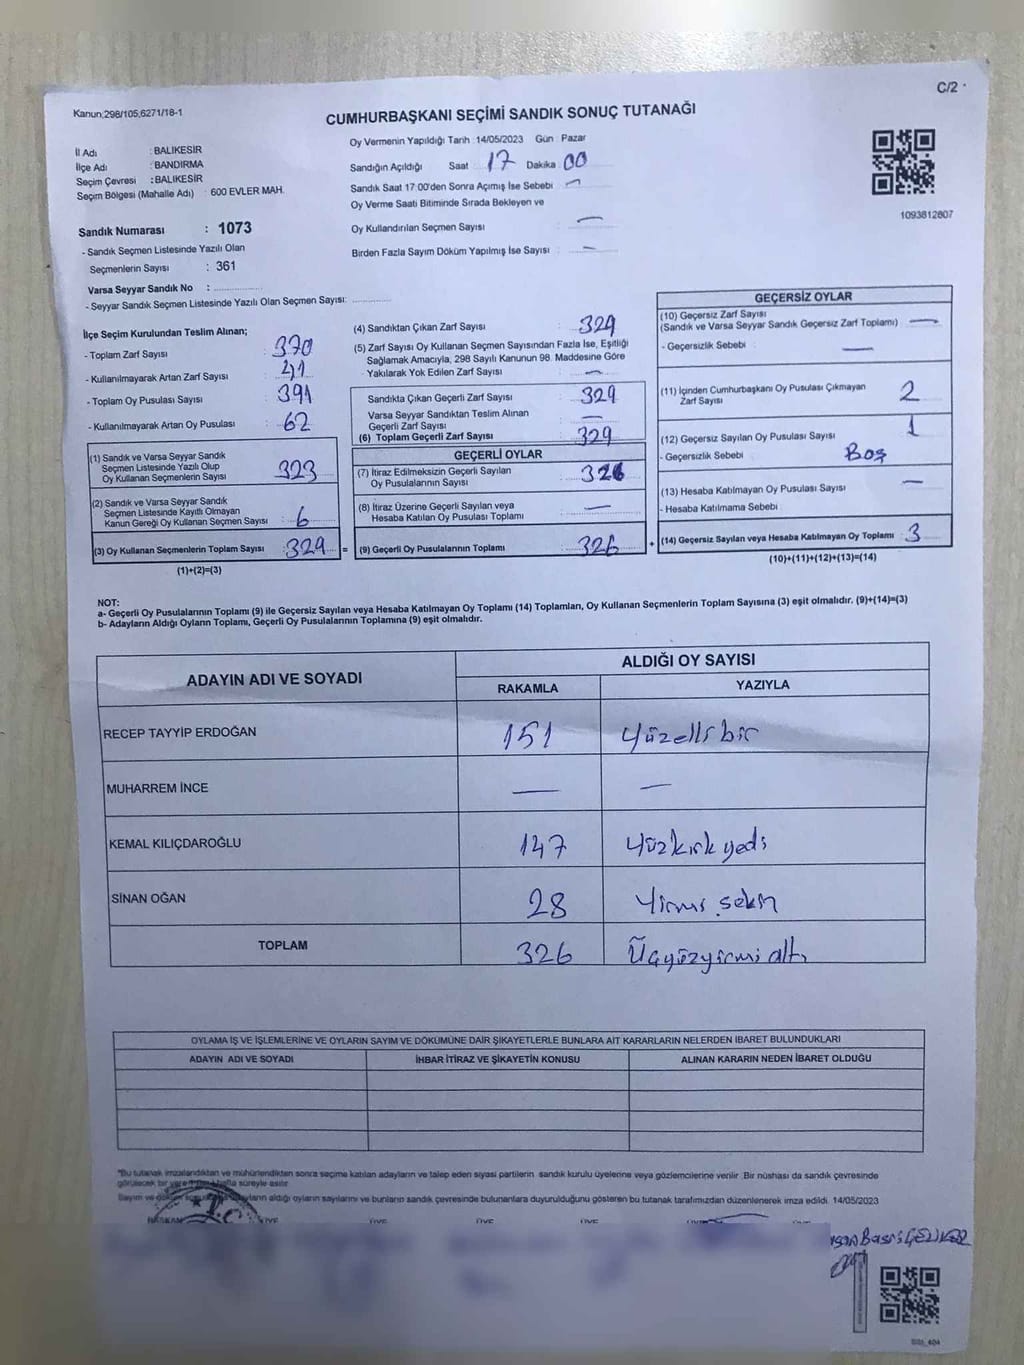 C/2
Kanun;298/105,6271/18-1
CUMHURBAŞKANI SEÇİMİ SANDIK SONUÇ TUTANAĞI
Oy Vermenin Yapıldığı Tarih : 14/05/2023 Gün : Pazar
İl Adı : BALIKESİR
İlçe Adı : BANDIRMA
Seçim Çevresi : BALIKESİR
Seçim Bölgesi (Mahalle Adı) : 600 EVLER MAH.
Sandığın Açıldığı Saat 17 Dakika 00
Sandık Saat 17:00'den Sonra Açımış İse Sebebi —
Oy Verme Saati Bitiminde Sırada Bekleyen ve
Oy Kullandırılan Seçmen Sayısı —
Birden Fazla Sayım Döküm Yapılmış İse Sayısı : —
1093812807
Sandık Numarası : 1073
- Sandık Seçmen Listesinde Yazılı Olan
Seçmenlerin Sayısı : 361
Varsa Seyyar Sandık No :
- Seyyar Sandık Seçmen Listesinde Yazılı Olan Seçmen Sayısı:
İlçe Seçim Kurulundan Teslim Alınan;
- Toplam Zarf Sayısı : 370
- Kullanılmayarak Artan Zarf Sayısı : 41
- Toplam Oy Pusulası Sayısı : 391
- Kullanılmayarak Artan Oy Pusulası : 62
(1) Sandık ve Varsa Seyyar Sandık
Seçmen Listesinde Yazılı Olup
Oy Kullanan Seçmenlerin Sayısı : 323
(2) Sandık ve Varsa Seyyar Sandık
Seçmen Listesinde Kayıtlı Olmayan
Kanun Gereği Oy Kullanan Seçmen Sayısı : 6
(3) Oy Kullanan Seçmenlerin Toplam Sayısı : 329 =
(1)+(2)=(3)
(4) Sandıktan Çıkan Zarf Sayısı : 329
(5) Zarf Sayısı Oy Kullanan Seçmen Sayısından Fazla İse, Eşitliği
Sağlamak Amacıyla, 298 Sayılı Kanunun 98. Maddesine Göre
Yakılarak Yok Edilen Zarf Sayısı : —
Sandıkta Çıkan Geçerli Zarf Sayısı : 329
Varsa Seyyar Sandıktan Teslim Alınan
Geçerli Zarf Sayısı : —
(6) Toplam Geçerli Zarf Sayısı : 329
GEÇERLİ OYLAR
(7) İtiraz Edilmeksizin Geçerli Sayılan
Oy Pusulalarının Sayısı : 326
(8) İtiraz Üzerine Geçerli Sayılan veya
Hesaba Katılan Oy Pusulası Toplamı : —
(9) Geçerli Oy Pusulalarının Toplamı : 326 +
GEÇERSİZ OYLAR
(10) Geçersiz Zarf Sayısı
(Sandık ve Varsa Seyyar Sandık Geçersiz Zarf Toplamı) —
- Geçersizlik Sebebi : —
(11) İçinden Cumhurbaşkanı Oy Pusulası Çıkmayan
Zarf Sayısı 2
(12) Geçersiz Sayılan Oy Pusulası Sayısı 1
- Geçersizlik Sebebi Boş
(13) Hesaba Katılmayan Oy Pusulası Sayısı —
- Hesaba Katılmama Sebebi
(14) Geçersiz Sayılan veya Hesaba Katılmayan Oy Toplamı : 3
(10)+(11)+(12)+(13)=(14)
NOT:
a- Geçerli Oy Pusulalarının Toplamı (9) ile Geçersiz Sayılan veya Hesaba Katılmayan Oy Toplamı (14) Toplamları, Oy Kullanan Seçmenlerin Toplam Sayısına (3) eşit olmalıdır. (9)+(14)=(3)
b- Adayların Aldığı Oyların Toplamı, Geçerli Oy Pusulalarının Toplamına (9) eşit olmalıdır.
ADAYIN ADI VE SOYADI ALDIĞI OY SAYISI
RAKAMLA YAZIYLA
RECEP TAYYİP ERDOĞAN 151 Yüzelli bir
MUHARREM İNCE — —
KEMAL KILIÇDAROĞLU 147 Yüzkırk yedi
SİNAN OĞAN 28 Yirmi sekiz
TOPLAM 326 Üçyüzyirmi altı
OYLAMA İŞ VE İŞLEMLERİNE VE OYLARIN SAYIM VE DÖKÜMÜNE DAİR ŞİKAYETLERLE BUNLARA AİT KARARLARIN NELERDEN İBARET BULUNDUKLARI
ADAYIN ADI VE SOYADI İHBAR İTİRAZ VE ŞİKAYETİN KONUSU ALINAN KARARIN NEDEN İBARET OLDUĞU
"Bu tutanak imzalandıktan ve mühürlendikten sonra seçime katılan adayların ve talep eden siyasi partilerin sandık kurulu üyelerine veya gözlemcilerine verilir. Bir nüshası da sandık çevresinde
görülecek bir yere hafta süreyle asılır.
Sayım ve döküm aldığı oyların sayılarını ve bunların sandık çevresinde bulunanlara duyurulduğunu gösteren bu tutanak tarafımızdan düzenlenerek imza edildi. 14/05/2023
T.C.
BAŞKAN ÜYE ÜYE ÜYE ÜYE